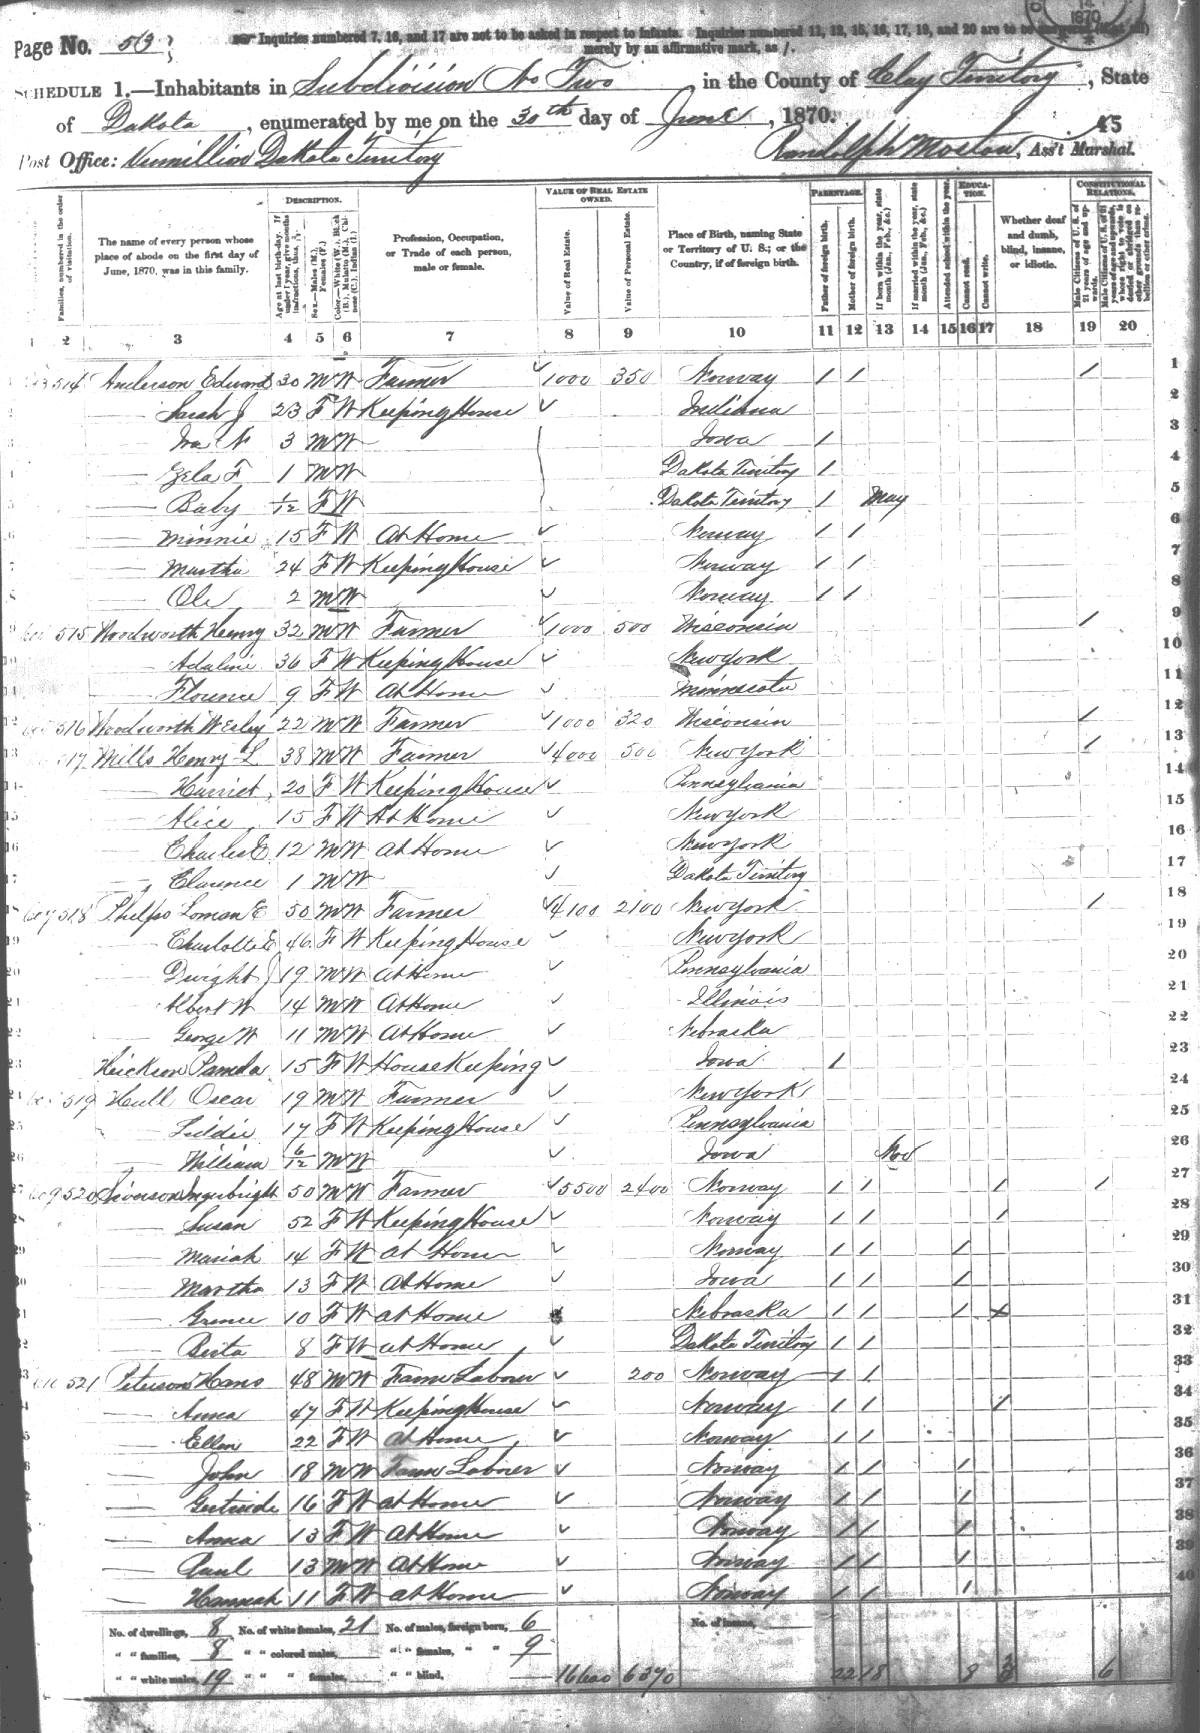 Page No. 53
Inquiries numbered 7, 16, and 17 are not to be asked in respect to infants. Inquiries numbered 11, 12, 15, 16, 17, 19, and 20 are to be
merely by an affirmative mark, as /.
1870
SCHEDULE 1.—Inhabitants in Subdivision No Two, in the County of Clay Territory, State
of Dakota, enumerated by me on the 30th day of June, 1870.
45
Post Office: Vermillion Dakota Territory Randolph, Ass't Marshal.
Families, numbered in the order of visitation.
The name of every person whose place of abode on the first day of June, 1870, was in this family.
DESCRIPTION.
Age at last birth-day. If under 1 year, give months in fractions, thus,
Sex.—Males (M.), Females (F.)
Color.—White (W.), Black (B.), Mulatto (M.), Chinese (C.), Indian (I.)
Profession, Occupation, or Trade of each person, male or female.
VALUE OF REAL ESTATE OWNED.
Value of Real Estate.
Value of Personal Estate.
Place of Birth, naming State or Territory of U. S.; or the Country, if of foreign birth.
PARENTAGE.
Father of foreign birth.
Mother of foreign birth.
If born within the year, state month (Jan., Feb., &c.)
If married within the year, state month (Jan., Feb., &c.)
Attended school within the year.
EDUCATION.
Cannot read.
Cannot write.
Whether deaf and dumb, blind, insane, or idiotic.
CONSTITUTIONAL RELATIONS.
Male Citizens of U. S. of 21 years of age and upwards.
1 2 3 4 5 6 7 8 9 10 11 12 13 14 15 16 17 18 19 20
514 Anderson Edward 30 M W Farmer 1000 350 Norway / / / 1
— Sarah J 23 F W Keeping House Indiana 2
— Ira N 3 M W Iowa / 3
— F 1 M W Dakota Territory / 4
— Baby 1/12 F W Dakota Territory / May 5
— Minnie 15 F W At Home Norway / / 6
— Martha 24 F W Keeping House Norway / / 7
— Ole 2 M W Norway / / 8
515 Woodworth Henry 32 M W Farmer 1000 500 Wisconsin / 9
— Adaline 36 F W Keeping House New York 10
— Florence 9 F W At Home Minnesota 11
516 Woodworth Wesley 22 M W Farmer 1000 320 Wisconsin / 12
517 Mills Henry L 38 M W Farmer 4000 500 New York / 13
— Harriet 20 F W Keeping House Pennsylvania 14
— Alice 15 F W At Home New York 15
— Charles E 12 M W At Home New York 16
— Clarence 1 M W Dakota Territory 17
518 Phelps Loman E 50 M W Farmer 4100 2100 New York / 18
— Charlotte E 46 F W Keeping House New York 19
— Dwight J 19 M W At Home Pennsylvania 20
— Albert W 14 M W At Home Illinois 21
— George W 11 M W At Home Nebraska 22
15 F W House Keeping Iowa / 23
519 Hull Oscar 19 M W Farmer New York 24
— 17 F W Keeping House Pennsylvania 25
— William 6/12 M W Iowa Nov 26
520 50 M W Farmer 5500 2400 Norway / / / / 27
— Susan 52 F W Keeping House Norway / / / 28
— Mariah 14 F W At Home Norway / / / 29
— Martha 13 F W At Home Iowa / / / 30
— 10 F W At Home Nebraska / / / 31
— Berta 8 F W At Home Dakota Territory / / 32
521 Peterson Hans 48 M W Farm Laborer 200 Norway / / 33
— Anna 47 F W Keeping House Norway / / / 34
— Ellen 22 F W At Home Norway / / 35
— John 18 M W Farm Laborer Norway / / / 36
— Gertrude 16 F W At Home Norway / / / 37
— Anna 13 F W At Home Norway / / / 38
— Paul 13 M W At Home Norway / / / 39
— Hannah 11 F W At Home Norway / / / 40
No. of dwellings, 8 No. of white females, 21 No. of males, foreign born, 6 No. of insane,
" " families, 8 " " colored males, " " females, " " 9
" " white males, 19 " " " females, " " blind, 16600 6370 22 18 8 6